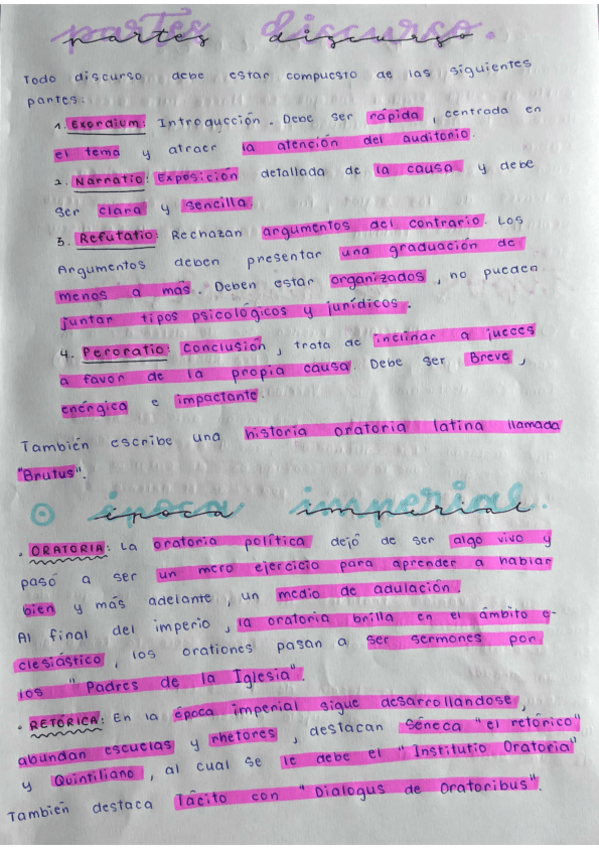 partes discurso.
Todo discurso debe estar compuesto de las siguientes
partes:
1. Exordium: Introducción. Debe ser rápida, centrada en
el tema y atraer la atención del auditorio.
2. Narratio: Exposición detallada de la causa y debe
ser clara y sencilla.
3. Refutatio: Rechazan argumentos del contrario. Los
Argumentos deben presentar una graduación de
menos a más. Deben estar organizados, no pueden
juntar tipos psicológicos y jurídicos.
4. Peroratio: Conclusión, trata de inclinar a jueces
a favor de la propia causa. Debe ser Breve,
enérgica e impactante.
También escribe una historia oratoria latina llamada
"Brutus".
época imperial.
· ORATORIA: La oratoria política dejó de ser algo vivo y
pasó a ser un mero ejercicio para aprender a hablar
bien y más adelante, un medio de adulación.
Al final del imperio, la oratoria brilla en el ámbito e-
clesiástico, los orationes pasan a ser sermones por
los "Padres de la Iglesia".
· RETÓRICA: En la época imperial sigue desarrollandose,
abundan escuelas y rhetores, destacan Séneca "el retórico"
y Quintiliano, al cual se le debe el "Institutio Oratoria"
También destaca Tácito con "Dialogus de Oratoribus".